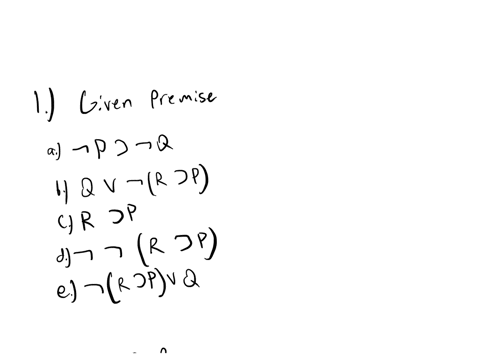 1.) Given Premise
a.) ¬P⊃¬Q
b.) Q V ¬(R⊃P)
c.) R ⊃P
d.) ¬ ¬ (R ⊃P)
e.) ¬(R⊃P)V Q